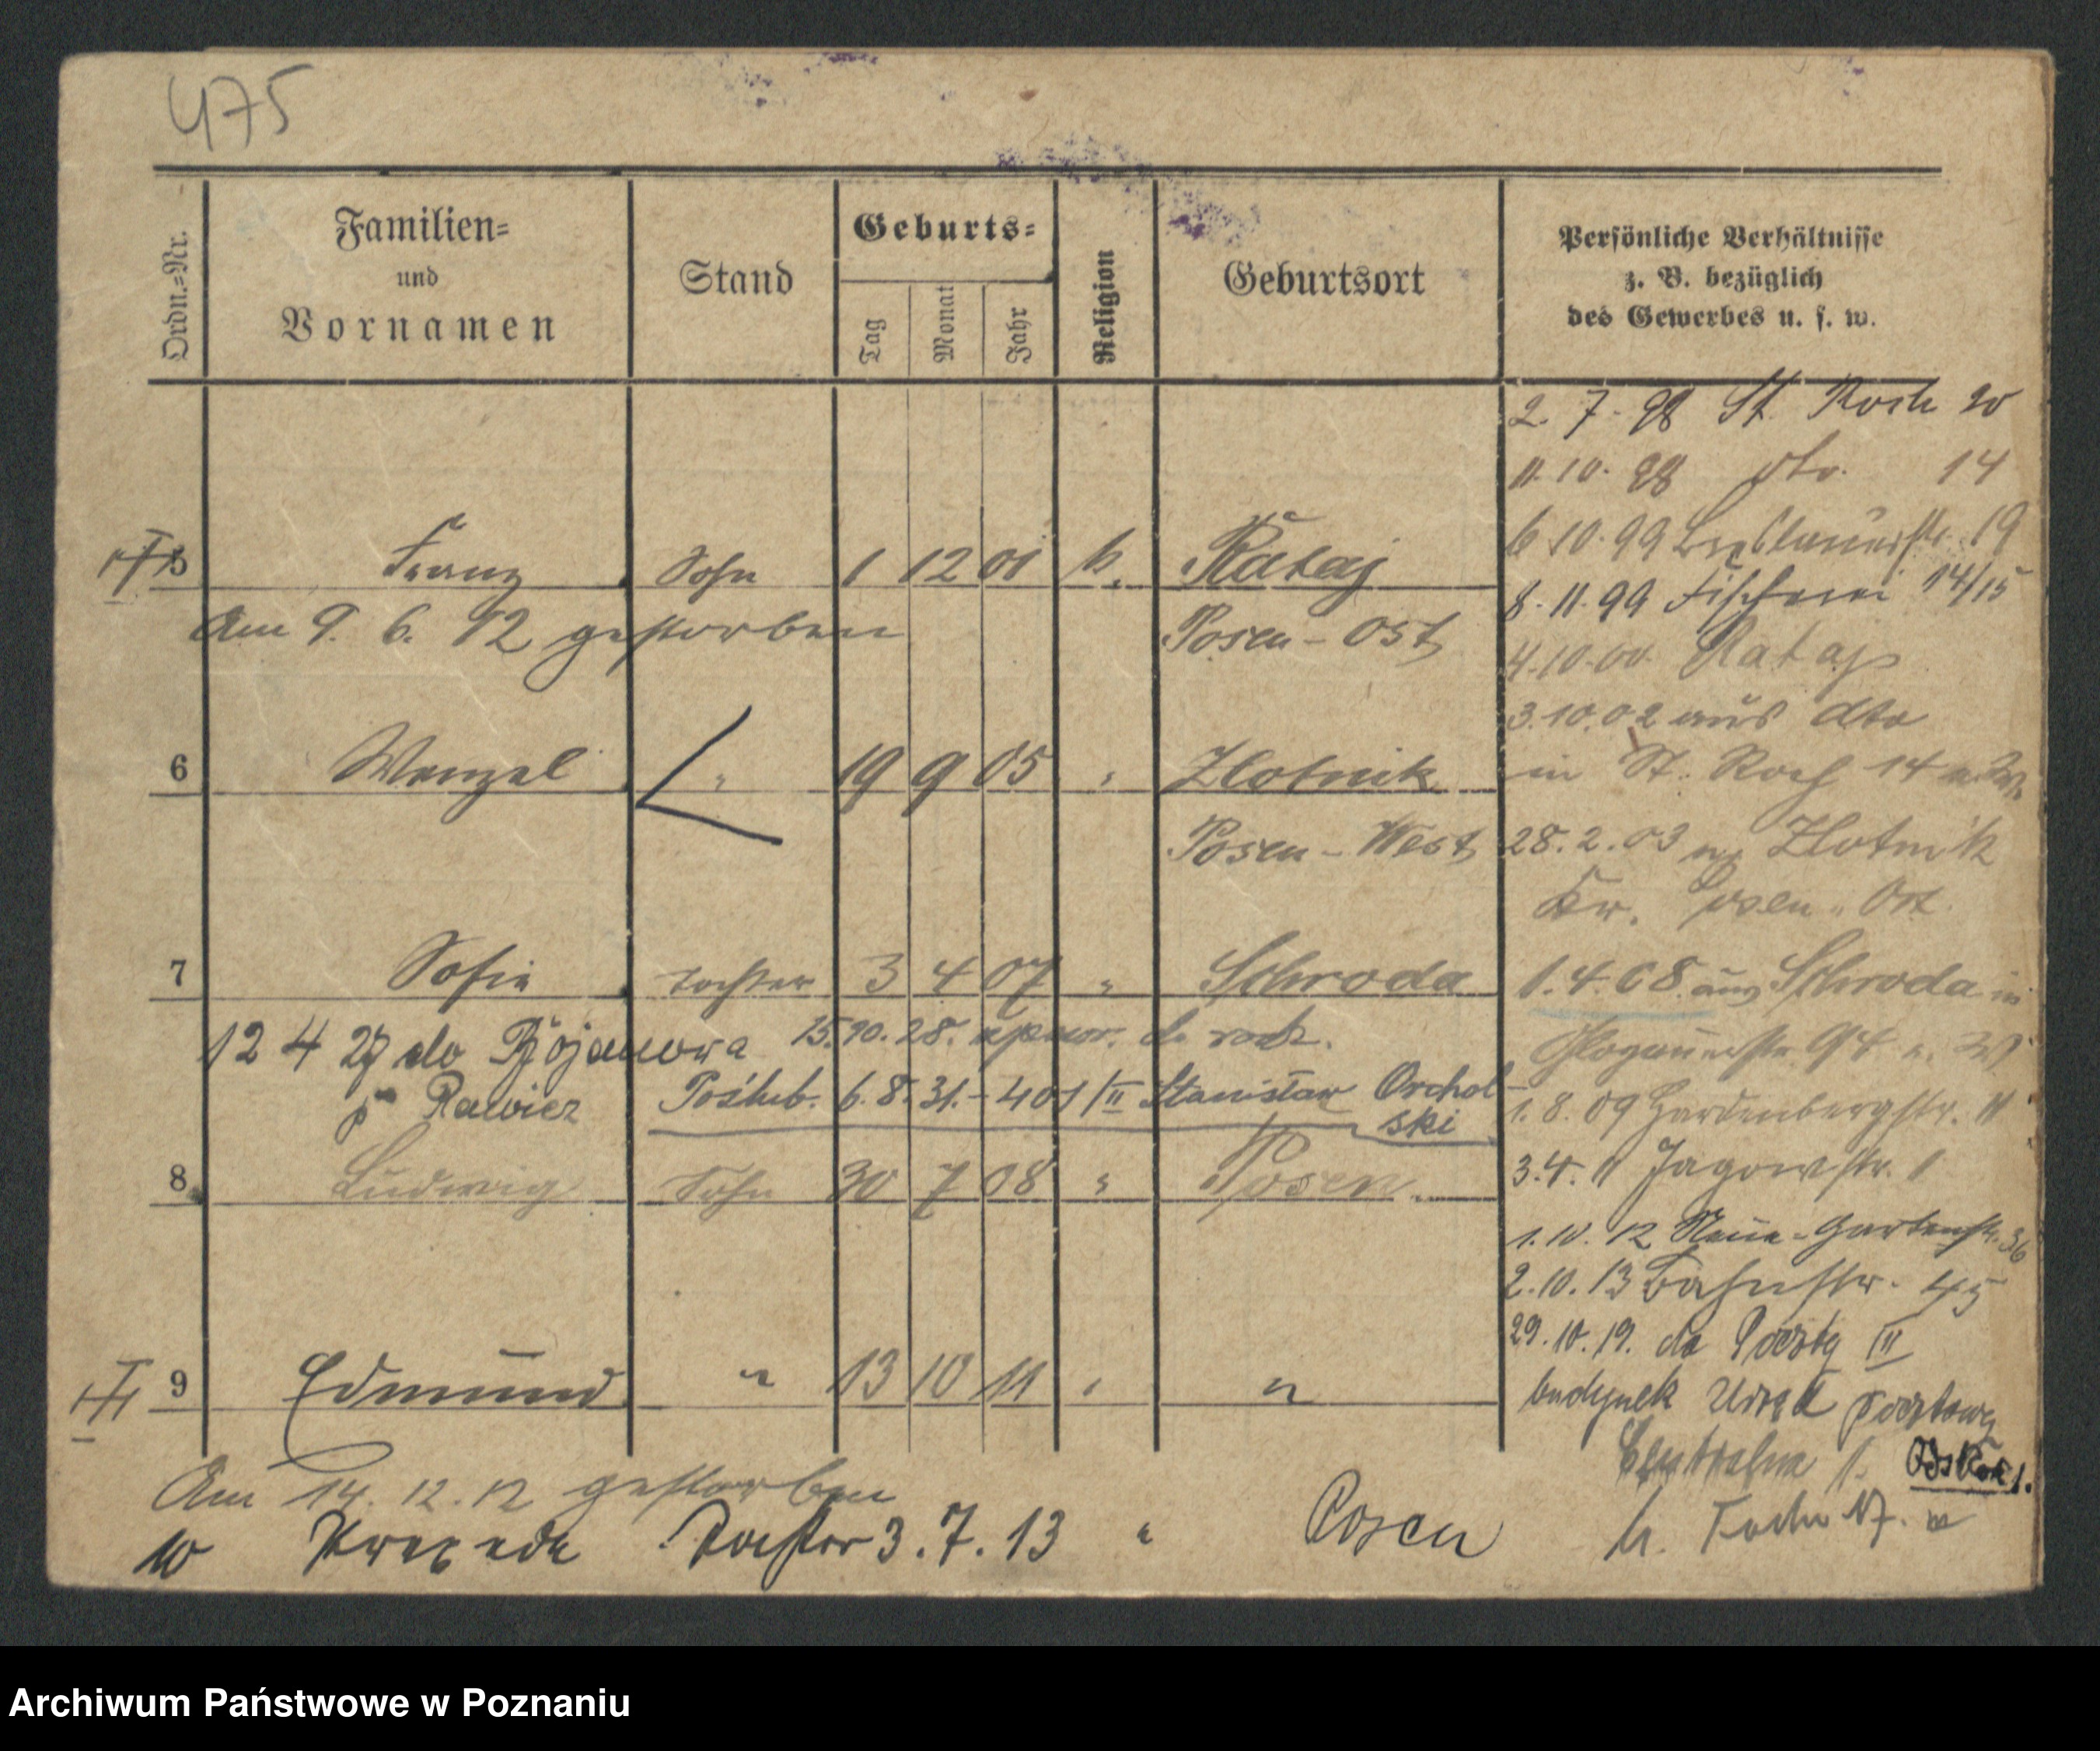 475
Ordn.-Nr.
Familien-
und
Vornamen
Stand
Geburts-
Tag
Monat
Jahr
Religion
Geburtsort
Persönliche Verhältnisse
z. B. bezüglich
des Gewerbes u. s. w.
5 Franz Sohn 1 12 01 k. Rataj
Am 9. 6. 12 gestorben Posen-Ost
6 Wenzel " 19 9 05 " Zlotnik
Posen-West
7 Sofie Tochter 3 4 07 " Schroda
12 4 27 do Bojanowa 15.10.28.
p Rawicz Poślub. 6.8.31.-401/II Stanisław Orchol-
ski
8 Ludwig Sohn 30 7 08 " Posen
9 Edmund " 13 10 11 " "
Am 14.12.12 gestorben
10 Praxede Tochter 3.7.13 " Posen
2.7.98 St. Roch 20
11.10.98 dto. 14
6.10.99 Breslauerstr. 19
8.11.99 Fischerei 14/15
4.10.00 Rataj
3.10.02 aus dto
in St. Roch 14
28.2.03 n. Zlotnik
Kr. Posen-Ost
1.4.08 aus Schroda in
Glogauerstr. 94
1.8.09 Hardenbergstr. 11
3.4.11 Jagowstr. 1
1.10.12 Neue-Gartenstr. 36
2.10.13 Bahnstr. 45
29.10.19. do Poczty II
budynek Urząd pocztowy
Centralna 1.
Archiwum Państwowe w Poznaniu